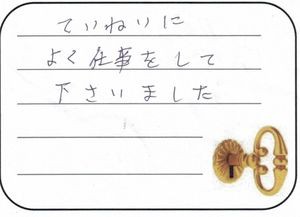 ていねいに
よく仕事をして
下さいました